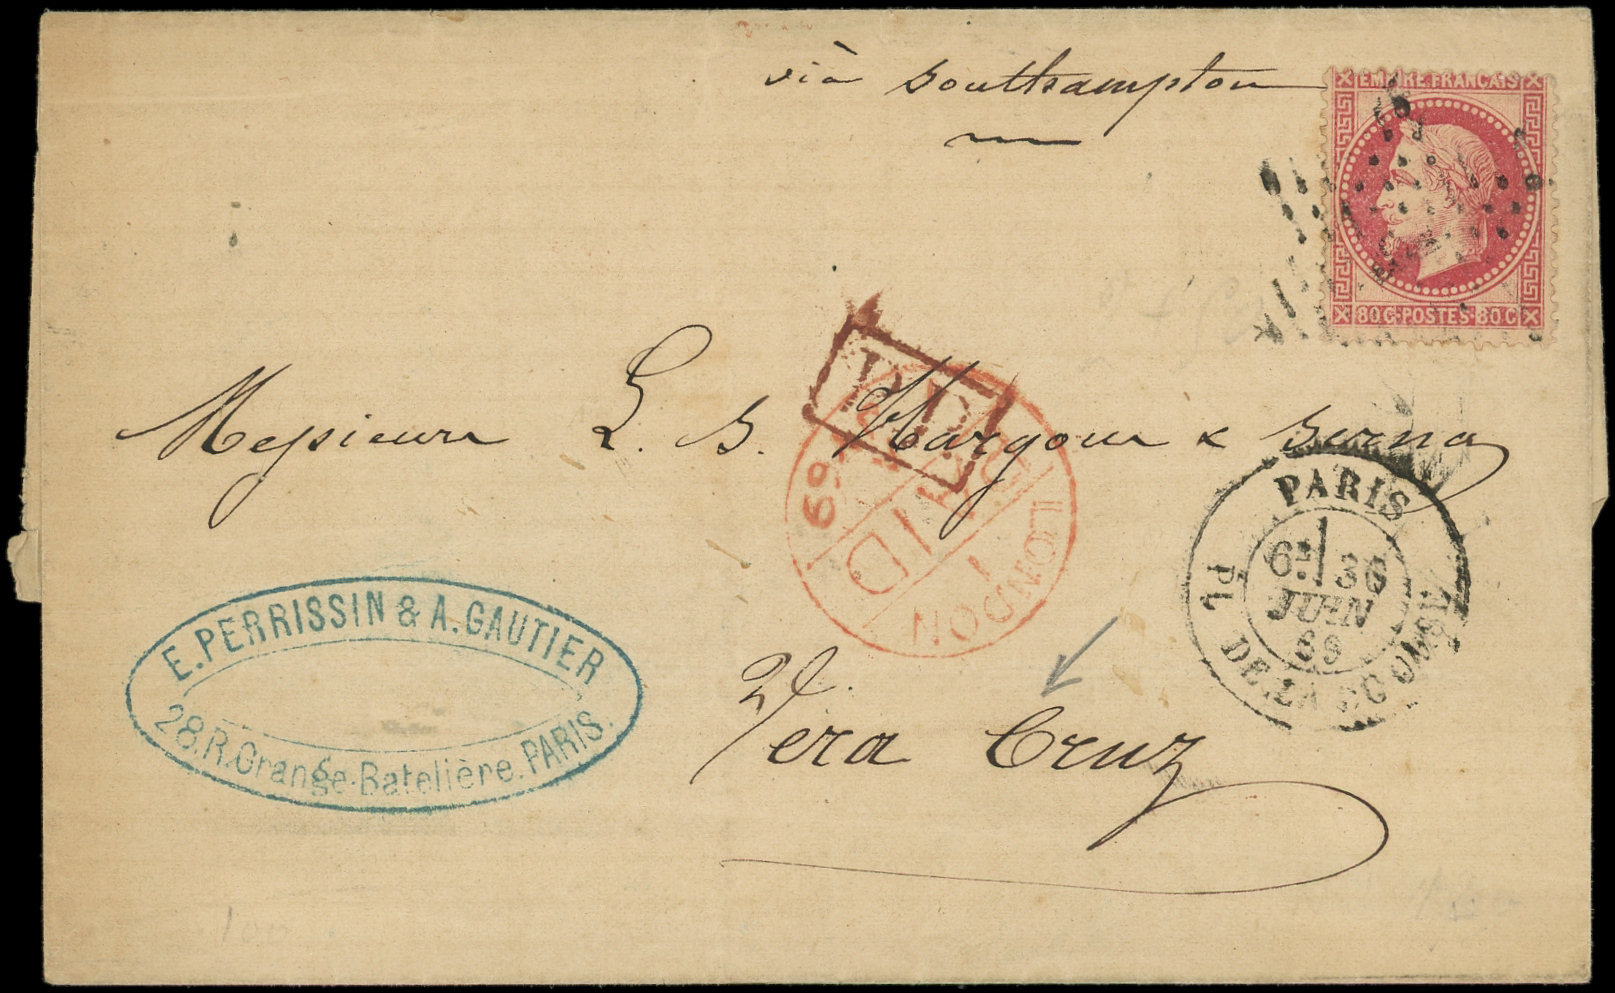 vià Southampton
EMPIRE FRANÇAIS
80 C · POSTES · 80 C
P.D.
Messieurs L. S. Hargous & Serna
LONDON
PAID
69
PARIS
6E 30
JUIN
69
PL. DE LA BOURSE
E. PERRISSIN & A. GAUTIER
28. R. Grange-Batelière. PARIS.
Vera Cruz